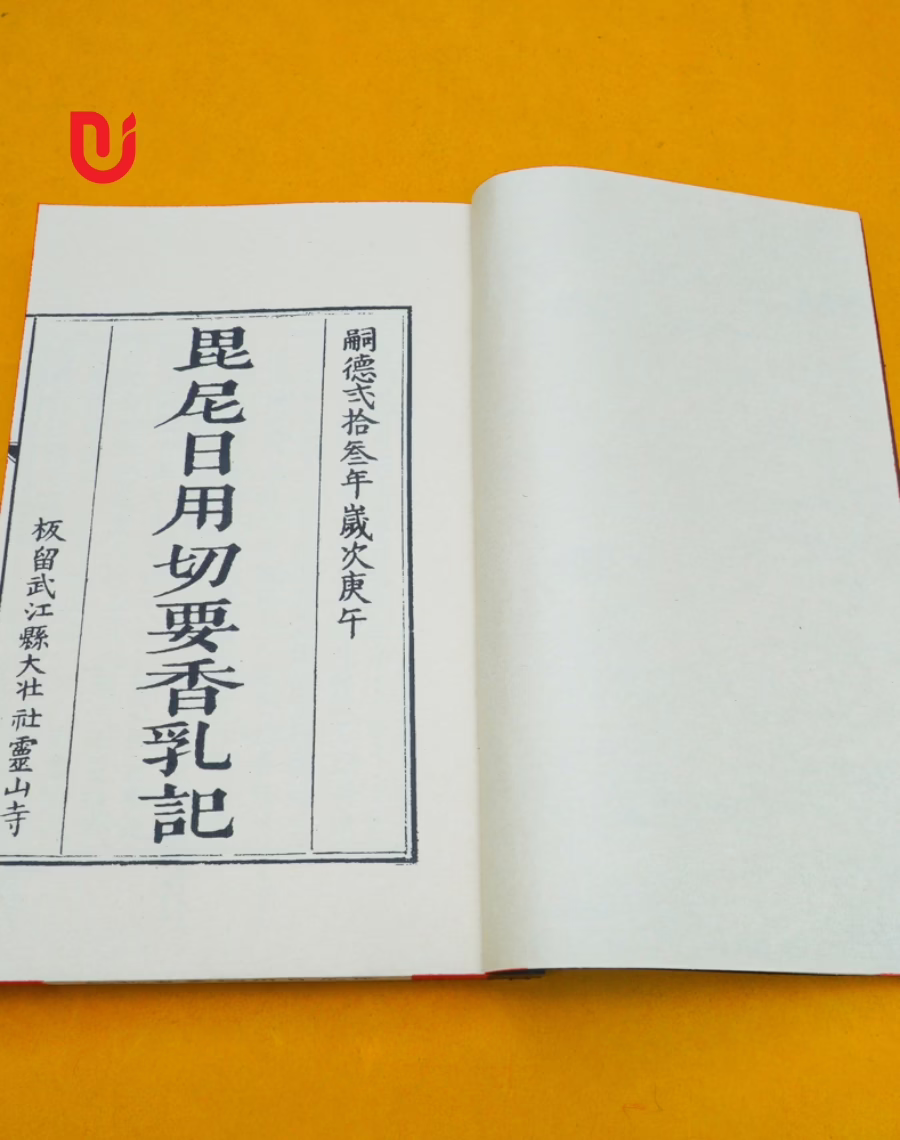 嗣德弍拾叁年歲次庚午
毘尼日用切要香乳記
板留武江縣大壮社靈山寺